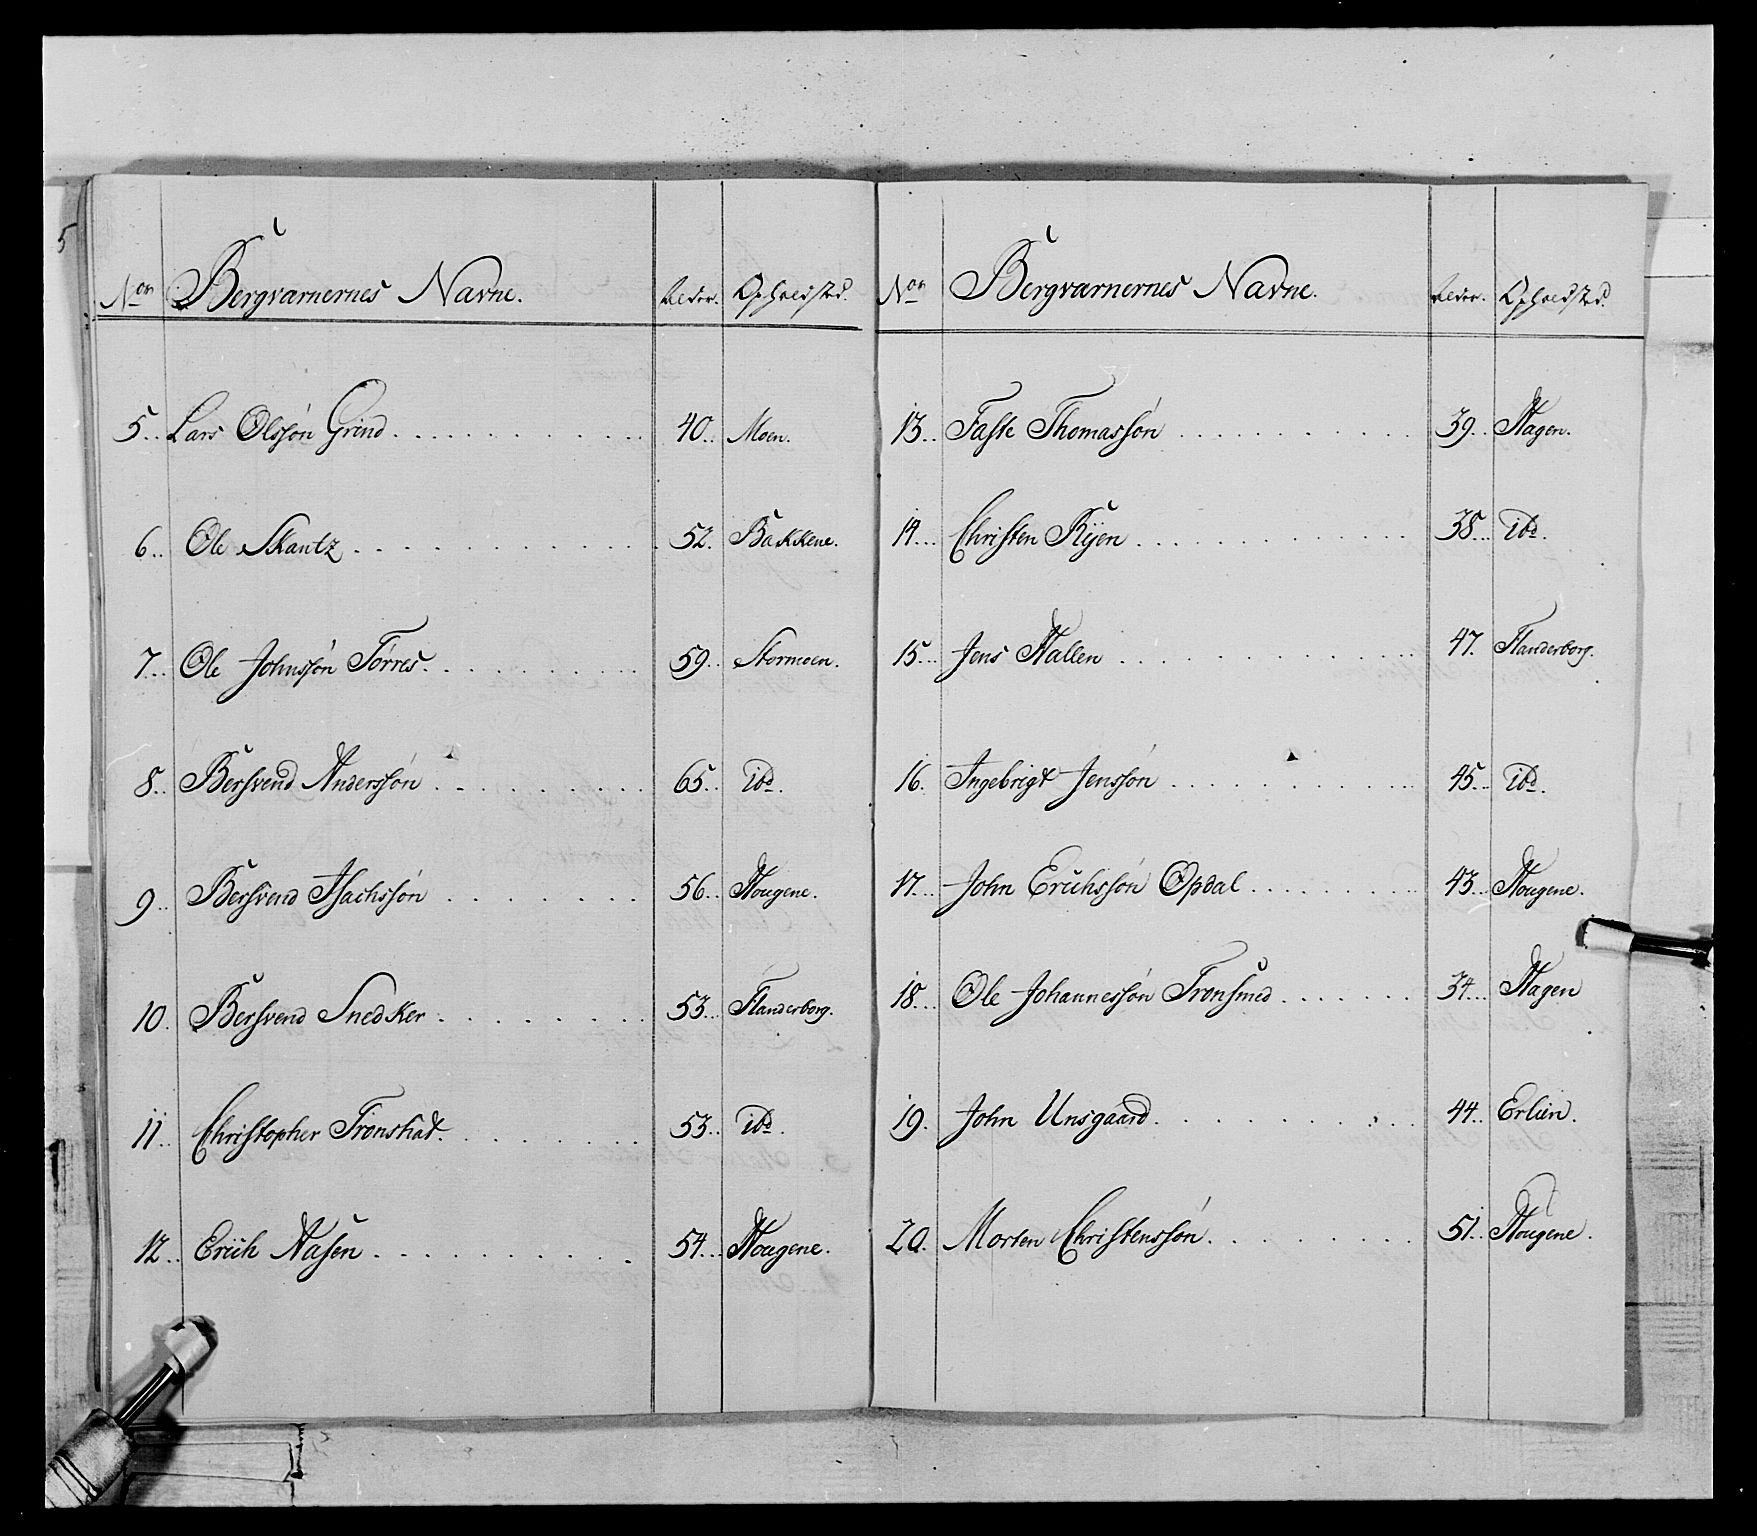 No Bergværnernes Navne. Alder. Opholdsted.
5.. Lars Olssön Grind 40.. Moen.
6.. Ole Skantz 52. Bakkene.
7.. Ole Johnssön Törres. 59.. Stormoen.
8.. Bersvend Anderssön 65.. ibd.
9.. Bersvend Isachssön 56.. Hougene.
10. Bersvend Snedker 53... Flanderborg.
11.. Christopher Trönskat. 53.. ibd.
12.. Erich Aasen 54... Hougene.
No Bergværnernes Navne. Alder. Opholdsted.
13.. Faste Thomassön 39.. Hagen.
14... Christen Ryen 38... ibd.
15... Jens Hallen 47. Flanderborg.
16. Ingebrigt Jenssön 45... ibd.
17... John Erichssön Opdal 43... Hougene.
18... Ole Johannessön Tronsmed 34... Hagen
19. John Unsgaard. 44.. Erlien.
20. Morten Christenssön. 51.. Hougene.
5